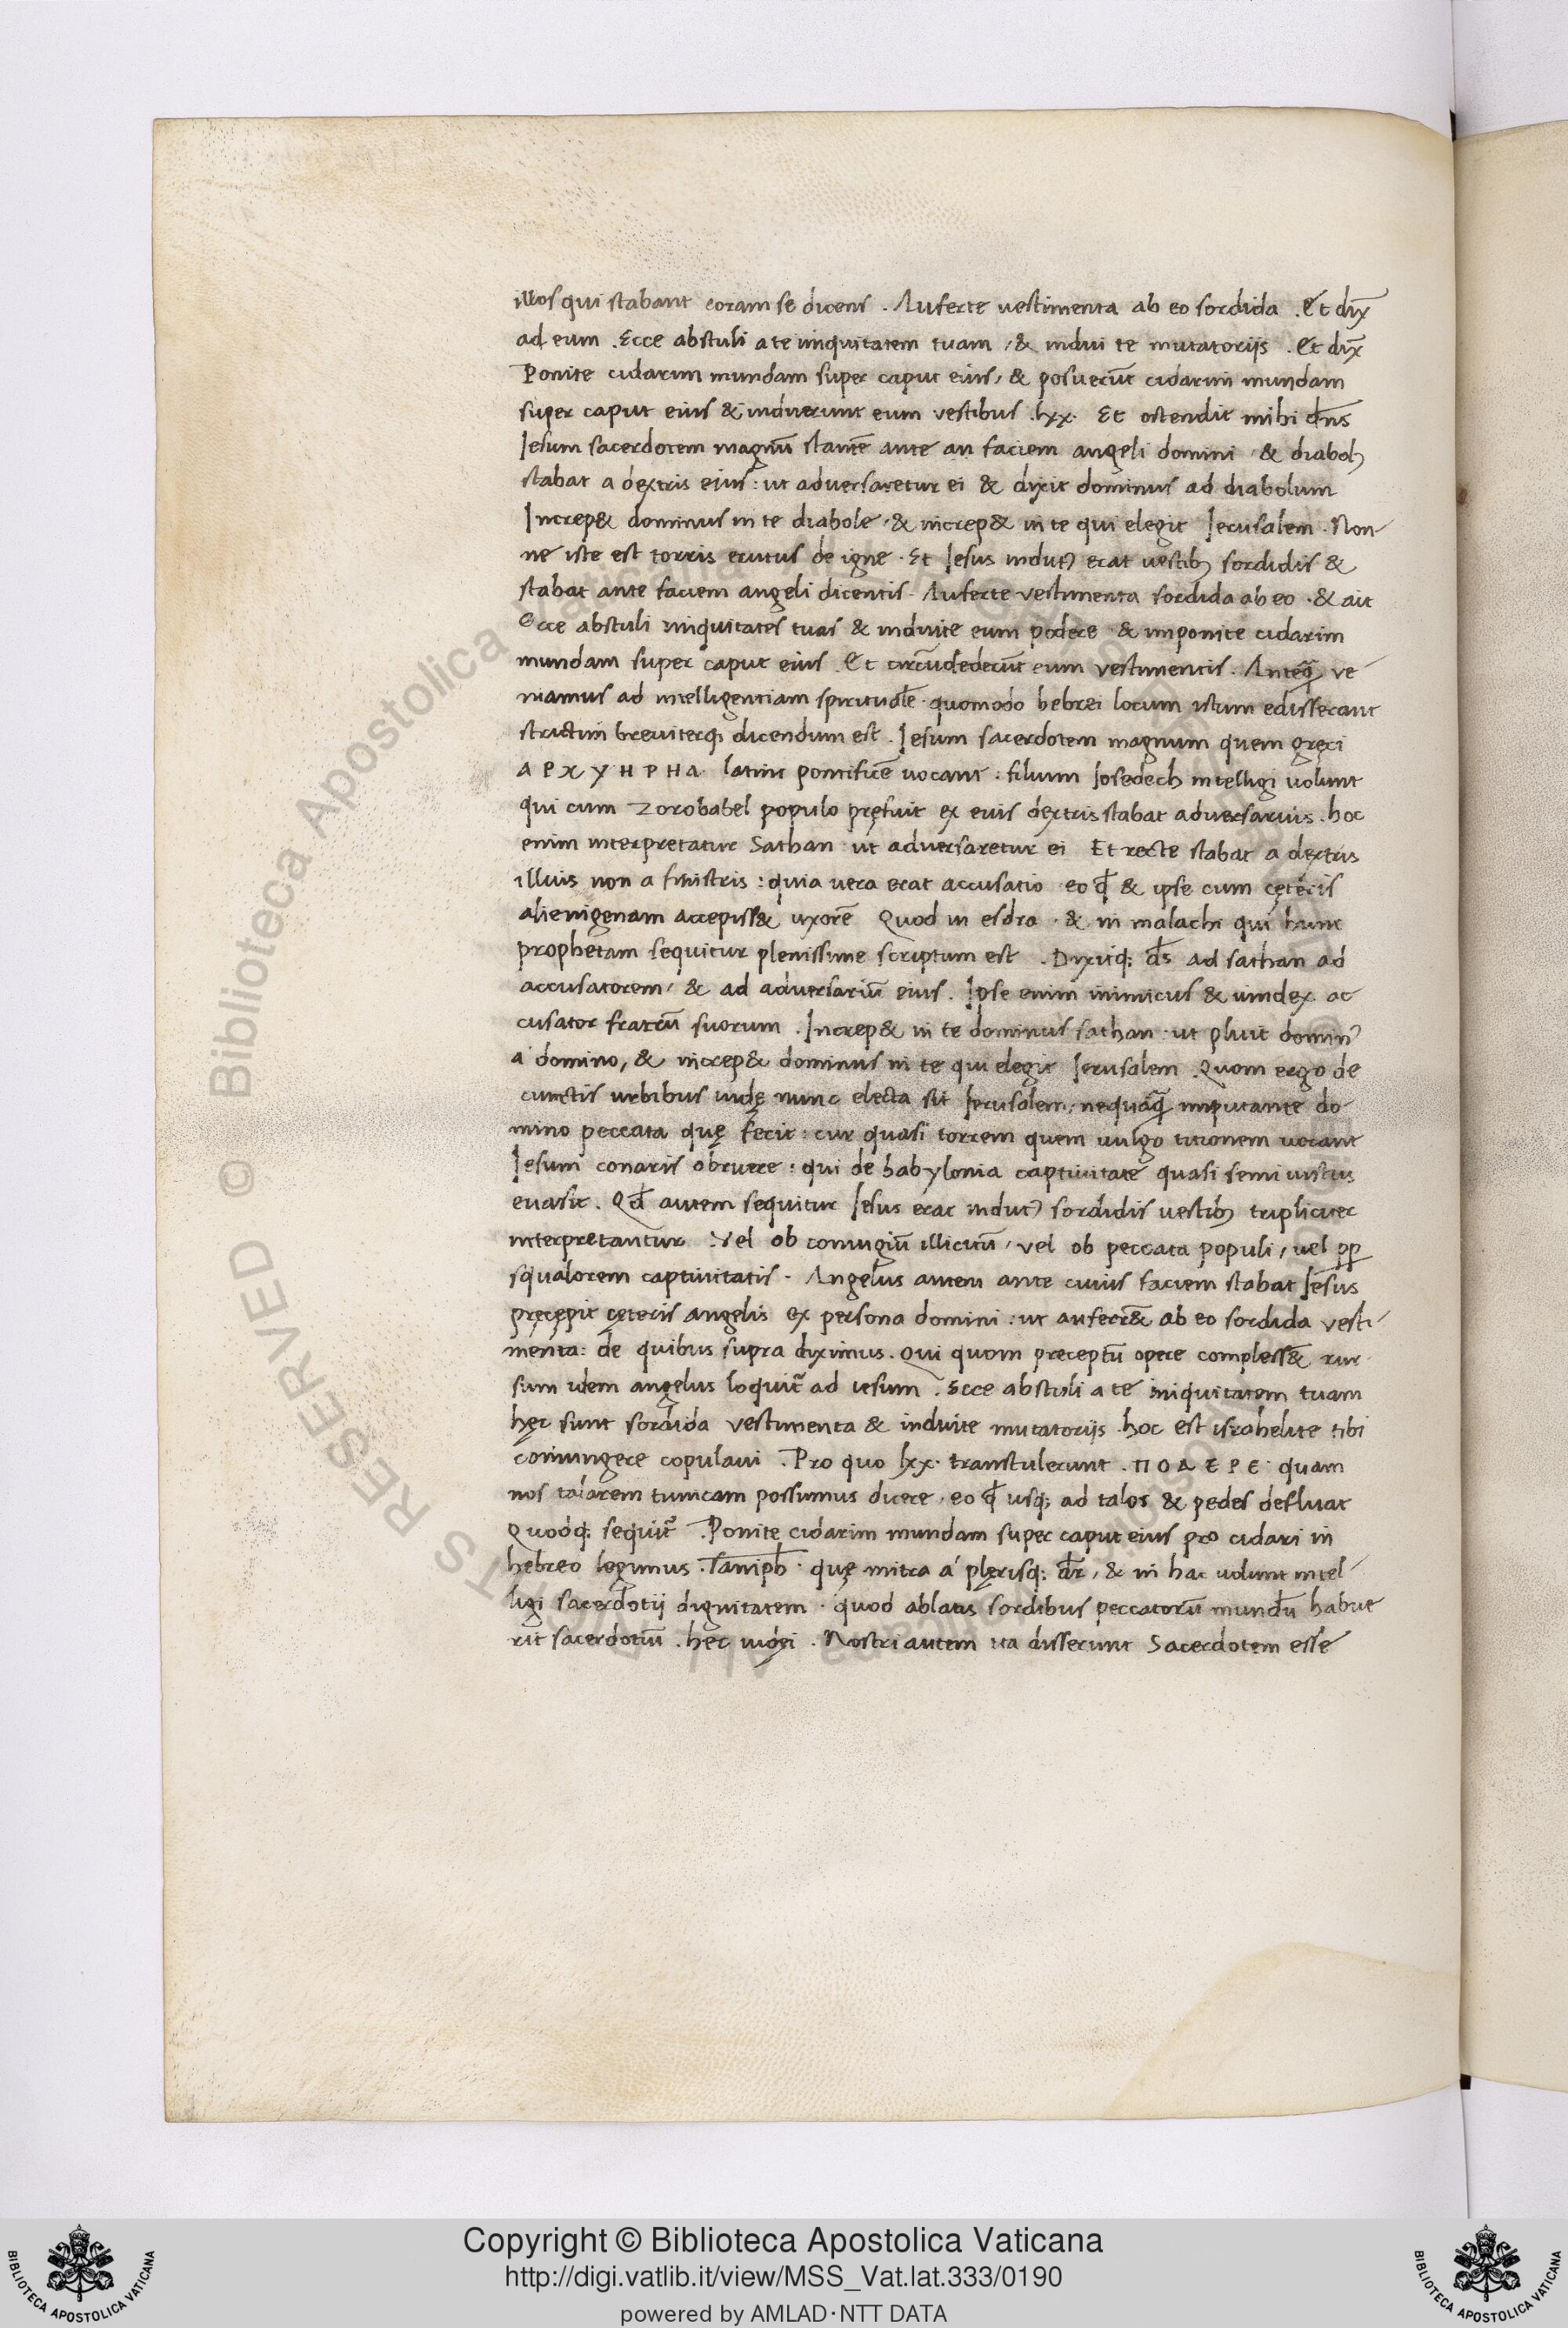 illos qui stabant coram se dicens . Auferte uestimenta ab eo sordida . Et dix̄
ad eum . Ecce abstuli a te iniquitatem tuam , & indui te mutatoriis . Et dix̄
Ponite cidarim mundam super caput eius , & posuerūt cidarim mundam
super caput eius & induerunt eum vestibus . lxx . Et ostendit mihi dn̄s
Iesum sacerdotem magnū stantē ante an faciem angeli domini , & diabolꝫ
stabat a dextris eius : ut adversaretur ei & dixit dominus ad diabolum
Increp& dominus in te diabole , & increp& in te qui elegit Ierusalem . Non-
ne iste est torris erutus de igne . Et Iesus indutꝰ erat uestibꝫ sordidis &
stabat ante faciem angeli dicentis . Auferte vestimenta sordida ab eo . & ait
Ecce abstuli iniquitates tuas & induite eum podere & imponite cidarim
mundam super caput eius . Et circūdederūt eum vestimentis . Anteq̄ ve-
niamus ad intelligentiam spiritualē . quomodo hebrei locum istum edisserant
strictim breuiterq; dicendum est . Iesum sacerdotem magnum quem gręci
Α Ρ Χ Υ Η Ρ Η Α latini pontificē uocant : filium Iosedech intelligi uolunt
qui cum Zorobabel populo pręfuit ex euis dextris stabat adversarius . hoc
enim interpretatur Sathan ut adversaretur ei Et recte stabat a dextris
illius non a sinistris : quia vera erat accusatio eo ꝙ & ipse cum cęteris
alienigenam accepiss& uxorē Quod in esdra . & in malachi qui hunc
prophetam sequitur plenissime scriptum est . Dixitq; d̄s ad sathan ad
accusatorem , & ad adversariū eius . Ipse enim inimicus & uindex ac
cusator fratrū suorum . Increp& in te dominus sathan . ut pluit dominꝰ
a domino , & increp& dominus in te qui elegit Ierusalem . Quom ergo de
cunctis urbibus iudę nunc electa sit Ierusalem , nequaq̄ imputante do-
mino peccata quę fecit : cur quasi torrem quem uulgo titionem uocant
Iesum conaris obruere : qui de babylonia captiuitate quasi semiustus
euasit . Qd̄ autem sequitur Iesus erat indutꝰ sordidis uestibꝫ tripliciter
interpretantur . Vel ob coniugiū illicitū , vel ob peccata populi , uel ꝓp̄
squalorem captiuitatis . Angelus autem ante cuius faciem stabat Iesus
pręcępit cęteris angelis ex persona domini : ut auferr& ab eo sordida vesti-
menta : de quibus supra diximus . Qui quom preceptū opere compless& rur-
sum idem angelus loquit̄ ad iesum . Ecce abstuli a te iniquitatem tuam
hęc sunt sordida vestimenta & induite mutatoriis . hoc est israhelite tibi
coniungere copulaui . Pro quo lxx . transtulerunt . Π Ο Δ Ε Ρ Ε quam
nos talarem tunicam possumus dicere , eo ꝙ usq; ad talos & pedes defluat
Quodq; sequit̄ . Ponite cidarim mundam super caput eius pro cidari in
hebreo legimus . Saniph̄ . quę mitra á plęrisq; dr̄ , & in hac uolunt intel-
ligi sacerdotij dignitatem . quod ablatis sordibus peccatorū mundū habue
rit sacerdotiū . hęc iudei . Nostri autem ita disserunt Sacerdotem esse
© Biblioteca Apostolica Vaticana
RESERVED
Copyright © Biblioteca Apostolica Vaticana
http://digi.vatlib.it/view/MSS_Vat.lat.333/0190
powered by AMLAD·NTT DATA
BIBLIOTECA APOSTOLICA VATICANA
BIBLIOTECA APOSTOLICA VATICANA